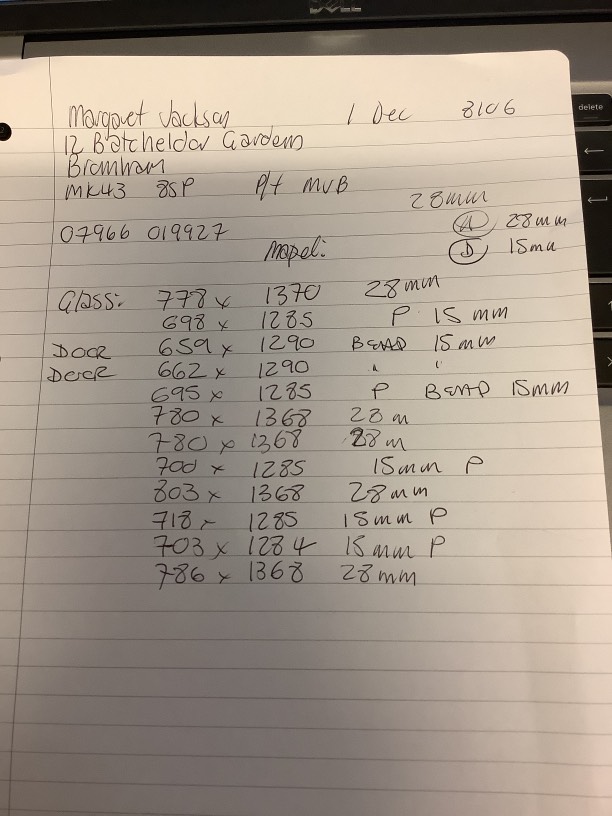 DELL
delete
Margaret Jackson 1 Dec 8106
12 Batcheldor Gardens
Bromham
MK43 8SP P/t MVB
28mm
A 28mm
07966 019927
D 15mm
Mapel:
Glass: 778 x 1370 28mm
698 x 1285 P 15 mm
DOOR 659 x 1290 BEAD 15mm
DOOR 662 x 1290 " "
695 x 1285 P BEAD 15MM
780 x 1368 28 m
780 x 1368 28 m
700 x 1285 15mm P
803 x 1368 28mm
718 x 1285 15mm P
703 x 1284 15mm P
786 x 1368 28mm